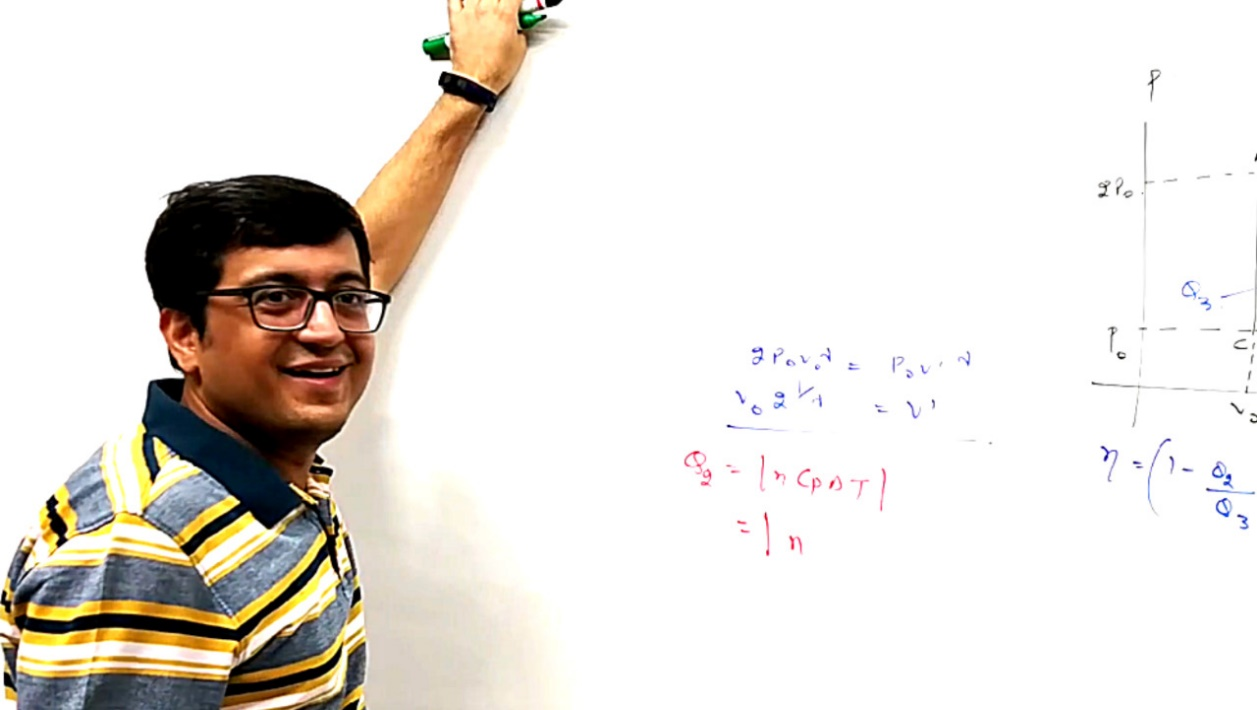 2P₀V₀^γ = P₀V'^γ
V₀ 2^(1/γ) = V'
Q₂ = |n Cp ΔT|
= | n
P
2P₀
Q₃
P₀
C
V₀
η = (1 - Q₂/Q₃